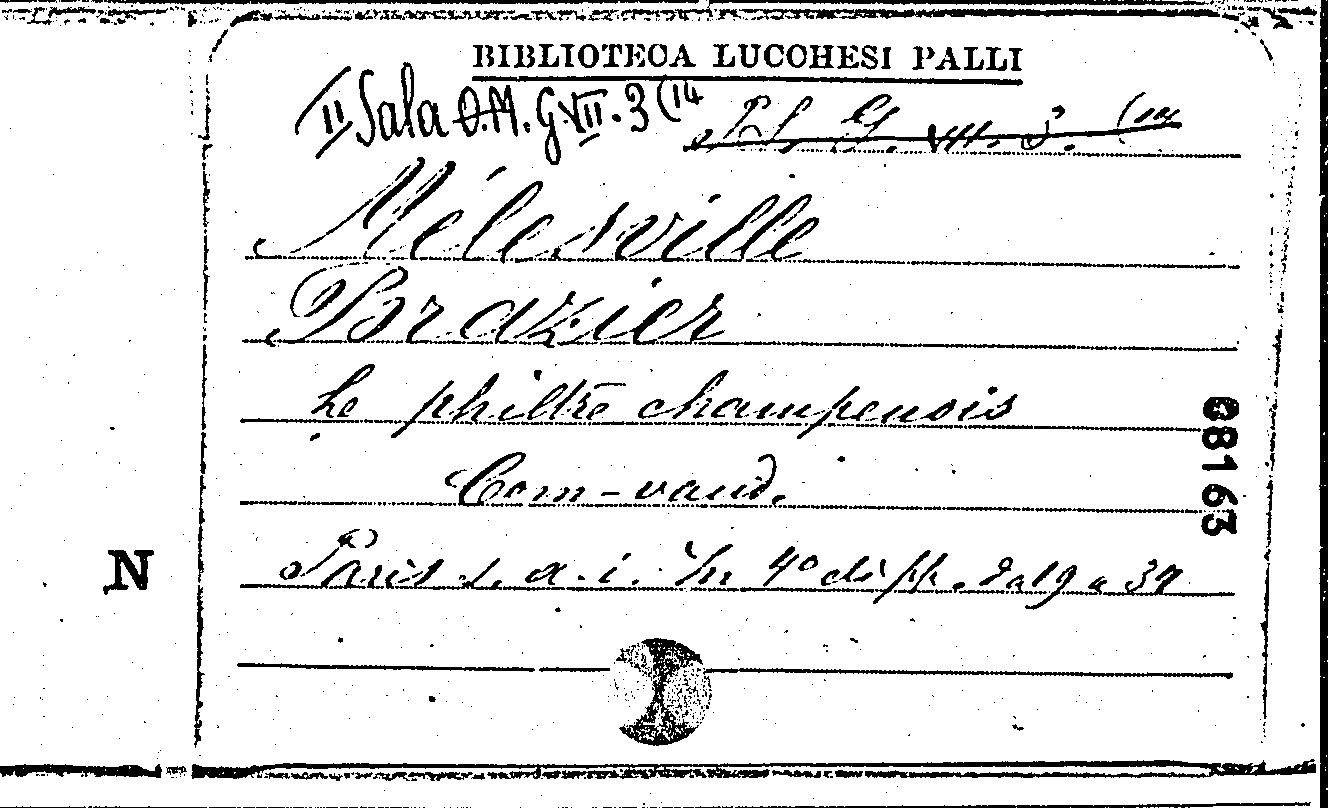 BIBLIOTECA LUCCHESI PALLI
II Sala O.M. G.VII. 3 (14
G. VII. 3. (14
Mélesville
Brazier
Le philtre champenois
Com-vaud.
Paris s. a. i. In 4º di pp. da 19 a 37
68163
N